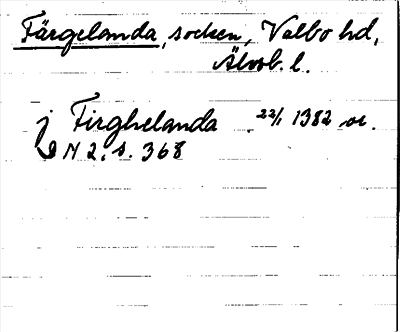 Färgelanda, socken, Valbo hd,
Älvsb. l.
j Firghelanda 22/1 1382 or.
DN 2, s. 368